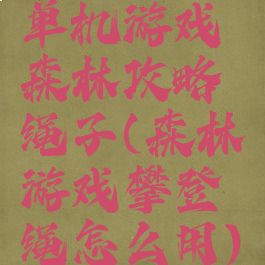 单机游戏
森林攻略
绳子(森林
游戏攀登
绳怎么用)